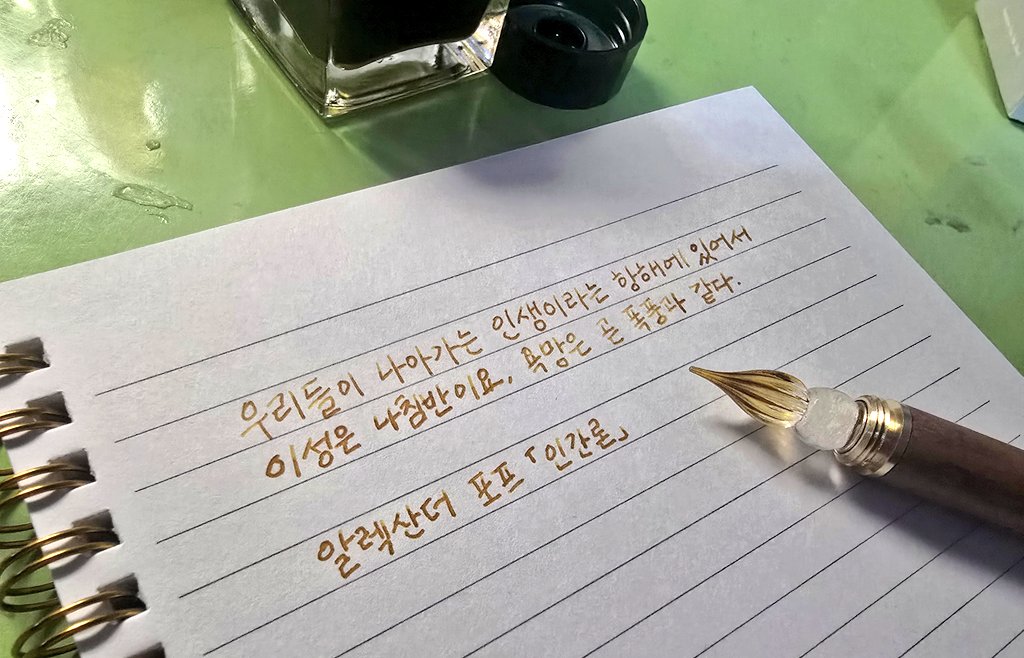 우리들이 나아가는 인생이라는 항해에 있어서
이성은 나침반이요, 욕망은 곧 폭풍과 같다.
알렉산더 포프 「인간론」